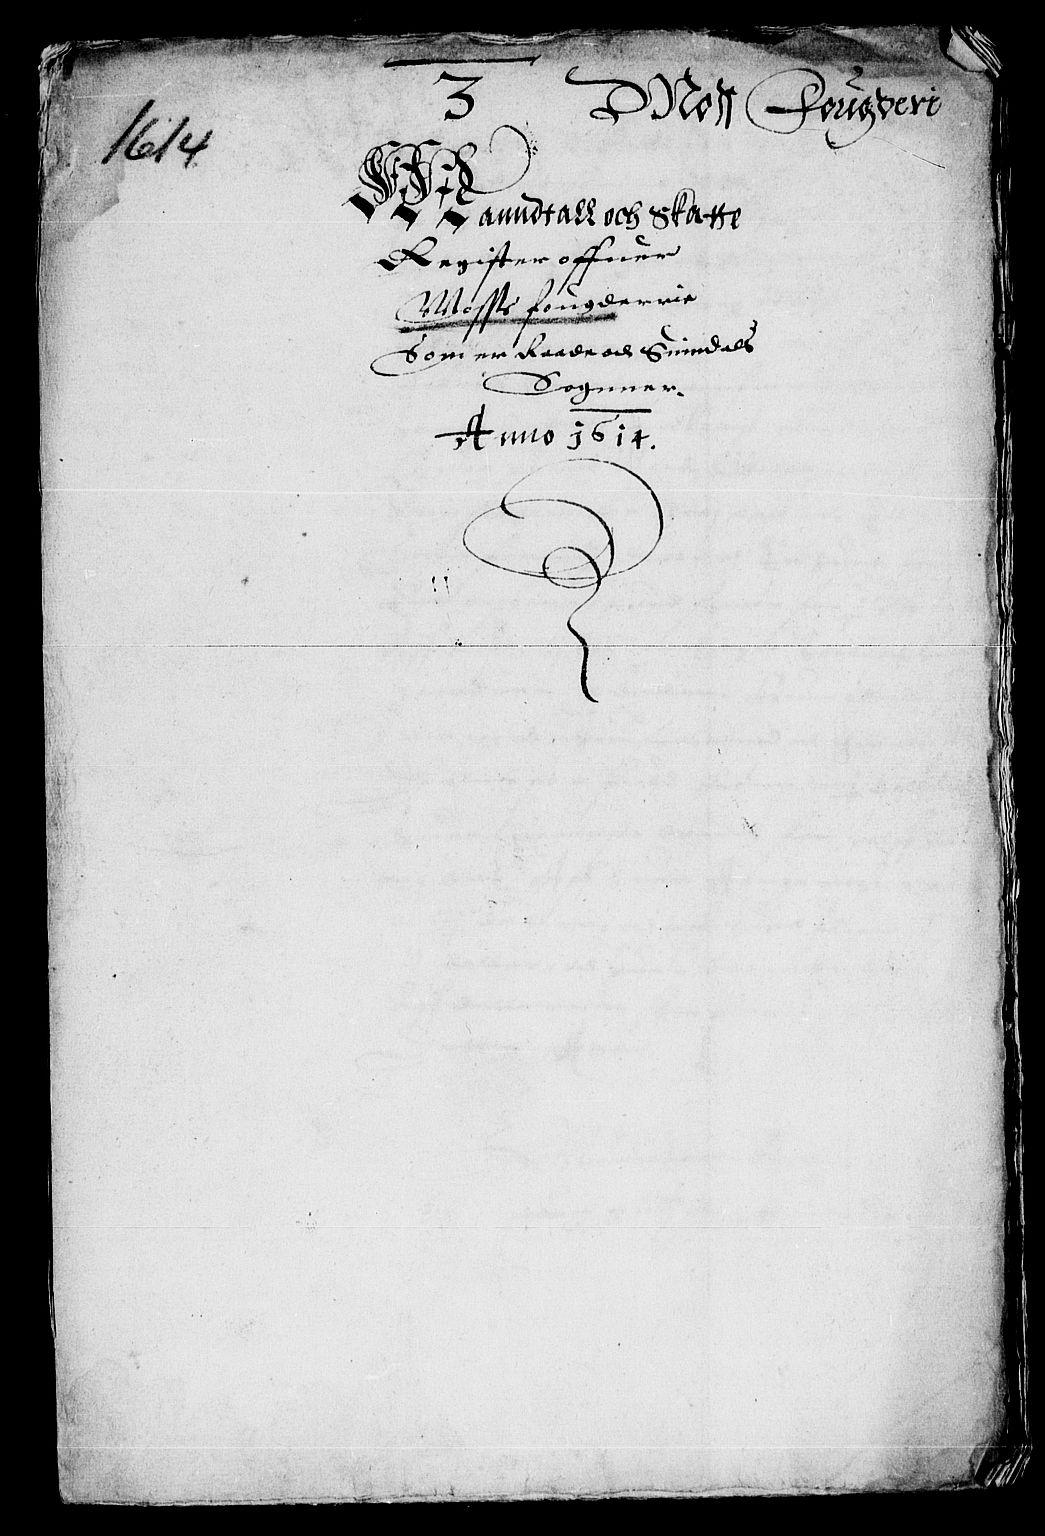 3 Moss Fougderi
1614
Manndtall och Skatte
Register offuer
Mosse fougderrie
Som er Raade och Suindals
Sognner.
Anno 1614.